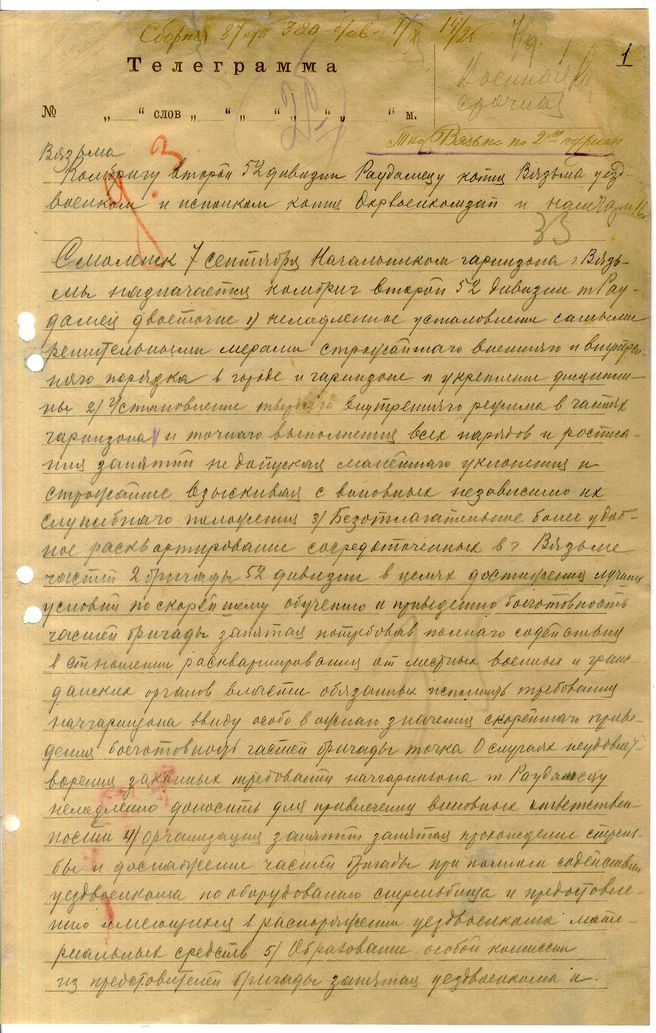 Сборная 87 380 14/25
7/9 1
Телеграмма
Военная
срочная
№ „ “ слов „ “ „ “ „ “ м.
Вязьма
Комбригу второй 52 дивизии Раудамецу копия Вязьма уезд-
военком и исполком копия Окрвоенкомзап и
33
Смоленск 7 сентября Начальником гарнизона г. Вязь-
мы назначается комбриг второй 52 дивизии т Рау-
дамец двоеточие 1) немедленное установление самыми
решительными мерами строжайшаго внешняго и внутрен-
няго порядка в городе и гарнизоне и укрепление дисципли-
ны 2) Установление твердаго внутренняго режима в частях
гарнизона и точнаго выполнения всех нарядов и росписа-
ния занятий не допуская малейшаго уклонения и
строжайше взыскивая с виновных независимо их
служебнаго положения 3) Безотлагательное более удоб-
ное расквартирование сосредоточенных в г. Вязьме
частей 2 бригады 52 дивизии в целях достижения лучших
условий по скорейшему обучению и приведению боеготовность
частей бригады запятая потребовав полнаго содействия
в отношении расквартирования от местных военных и граж-
данских органов власти обязанных исполнять требования
начгарнизона ввиду особо важнаго значения скорейшаго приве-
дения боеготовность частей бригады точка О случаях неудовлет-
ворения законных требований начгарнизона т Раудамецу
немедленно доносить для привлечения виновных ответствен-
ности 4) Организация занятий запятая прохождение стрель-
бы и доснабжение частей бригады при полном содействии
уездвоенкома по оборудованию стрельбища и предоставле-
нию имеющихся в распоряжении уездвоенкома мате-
риальных средств 5) Образование особой комиссии
из представителей бригады запятая уездвоенкома и